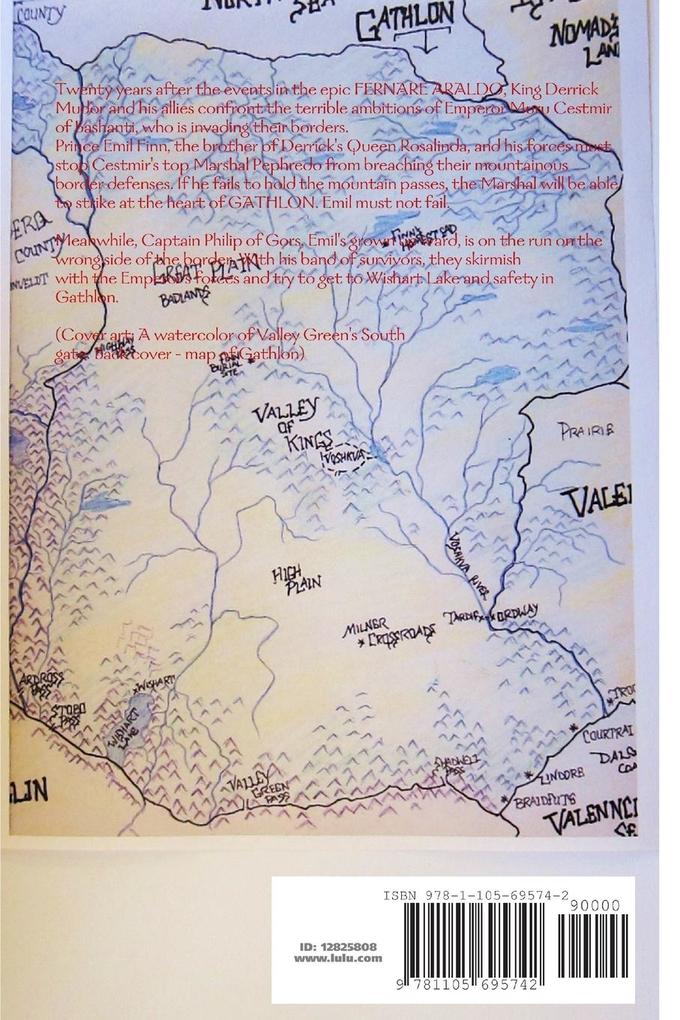 COUNTY
SEA
GATHLON
NOMAD'S
LAN
Twenty years after the events in the epic FERNARE ARALDO, King Derrick
Mudor and his allies confront the terrible ambitions of Emperor Muru Cestmir
of Bashanti, who is invading their borders.
Prince Emil Finn, the brother of Derrick's Queen Rosalinda, and his forces must
stop Cestmir's top Marshal Pephredo from breaching their mountainous
border defenses. If he fails to hold the mountain passes, the Marshal will be able
to strike at the heart of GATHLON. Emil must not fail.
COUNTY
Meanwhile, Captain Philip of Gors, Emil's grown ward, is on the run on the
wrong side of the border. With his band of survivors, they skirmish
with the Emperor's forces and try to get to Wishart Lake and safety in
Gathlon.
GREAT PLAIN
BADLANDS
(Cover art: A watercolor of Valley Green's South
gate, back cover - map of Gathlon)
BURIAL
SITE
VALLEY
OF
KINGS
VOSHKVA
PRAIRIE
VALEN
VOSHKVA RIVER
HIGH
PLAIN
TARDIF
FORDWAY
MILNER
CROSSROADS
ARDROSS
PASS
WISHART
STOBO
PASS
WISHART
LAKE
TRO
COURTRAI
SHADWELL
PASS
LINDORE
VALLEY
GREEN
PASS
LIN
VALENNCI
ISBN 978-1-105-69574-2
90000
ID: 12825808
www.lulu.com
9 781105 695742